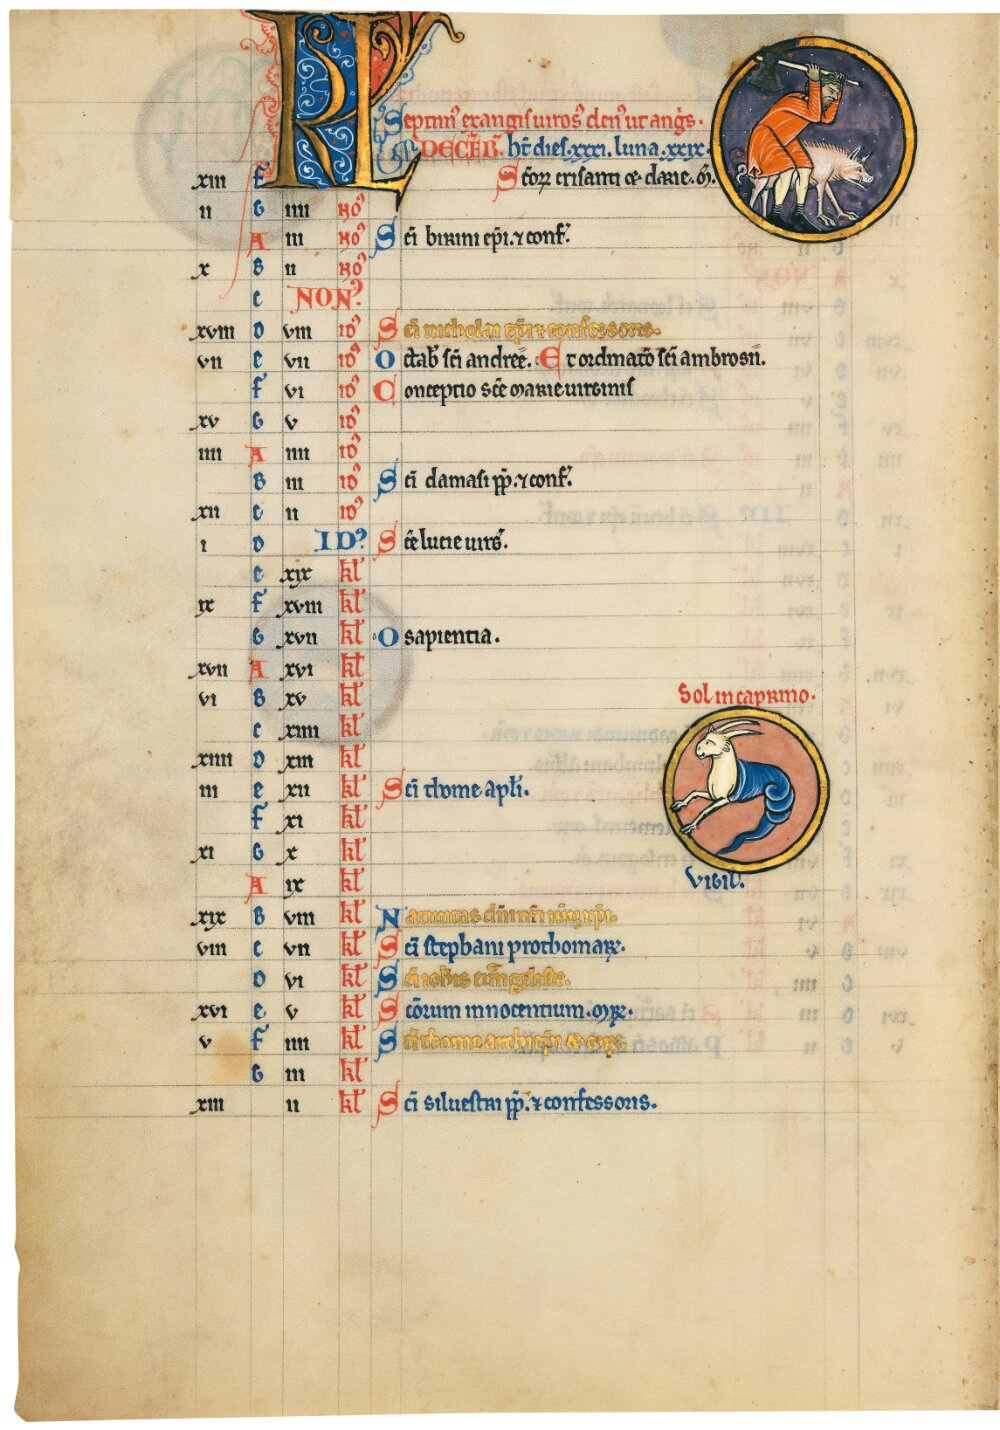 KL
Septim' exangis uiros' den' ut angis.
DECEB. ht dies .xxxi. luna .xxix.
xiii f Scorz crisanti & darie. m.
ii G iiii No' 
A iii No' Sci birini epi. & conf'.
x B ii No'
c NON'
xviii D viii id' Sci nicholai epi & confessoris.
vii e vii id' Octab' sci andree. Et ordinatio sci ambrosii.
f vi id' Conceptio sce marie uirginis
xv G v id'
iiii A iiii id'
B iii id' Sci damasi pp. & conf'.
xii c ii id'
i D ID' Sce lucie uirg'.
e xix kl'
ix f xviii kl'
G xvii kl' O sapientia.
xvii A xvi kl'
vi B xv kl' Sol in caprino.
c xiiii kl'
xiiii D xiii kl'
iii e xii kl' Sci thome apli.
f xi kl'
xi G x kl'
A ix kl' Vigil'.
xix B viii kl' Natiuitas dni nri ihu xpi.
viii c vii kl' Sci stephani prothomar'.
D vi kl' Sci iohis euangeliste.
xvi e v kl' Scorum innocentium. mr'.
v f iiii kl' Sci thome archiepi & mr'.
G iii kl'
xiii ii kl' Sci siluestri pp. & confessoris.